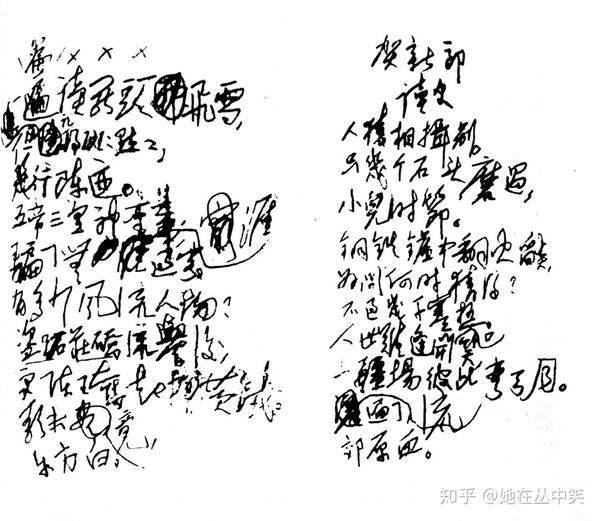 贺新郎
读史
人猿相揖别。
只幾个石头磨过,
小兒时節。
铜铁爐中翻火焰,
为问何时猜得?
不过幾千寒热。
人世难逢開口笑
上疆場彼此弯弓月。
遍了流
郊原血。
× × ×
篇读罢頭飛雪,
但记得斑斑點點,
幾行陈迹。
五帝三皇神聖事,
骗了無涯过客。
有多少风流人物?
盗跖莊蹻流譽後,
更陈王奋起挥黄钺。
歌未竟,
东方白。
知乎 @她在丛中笑